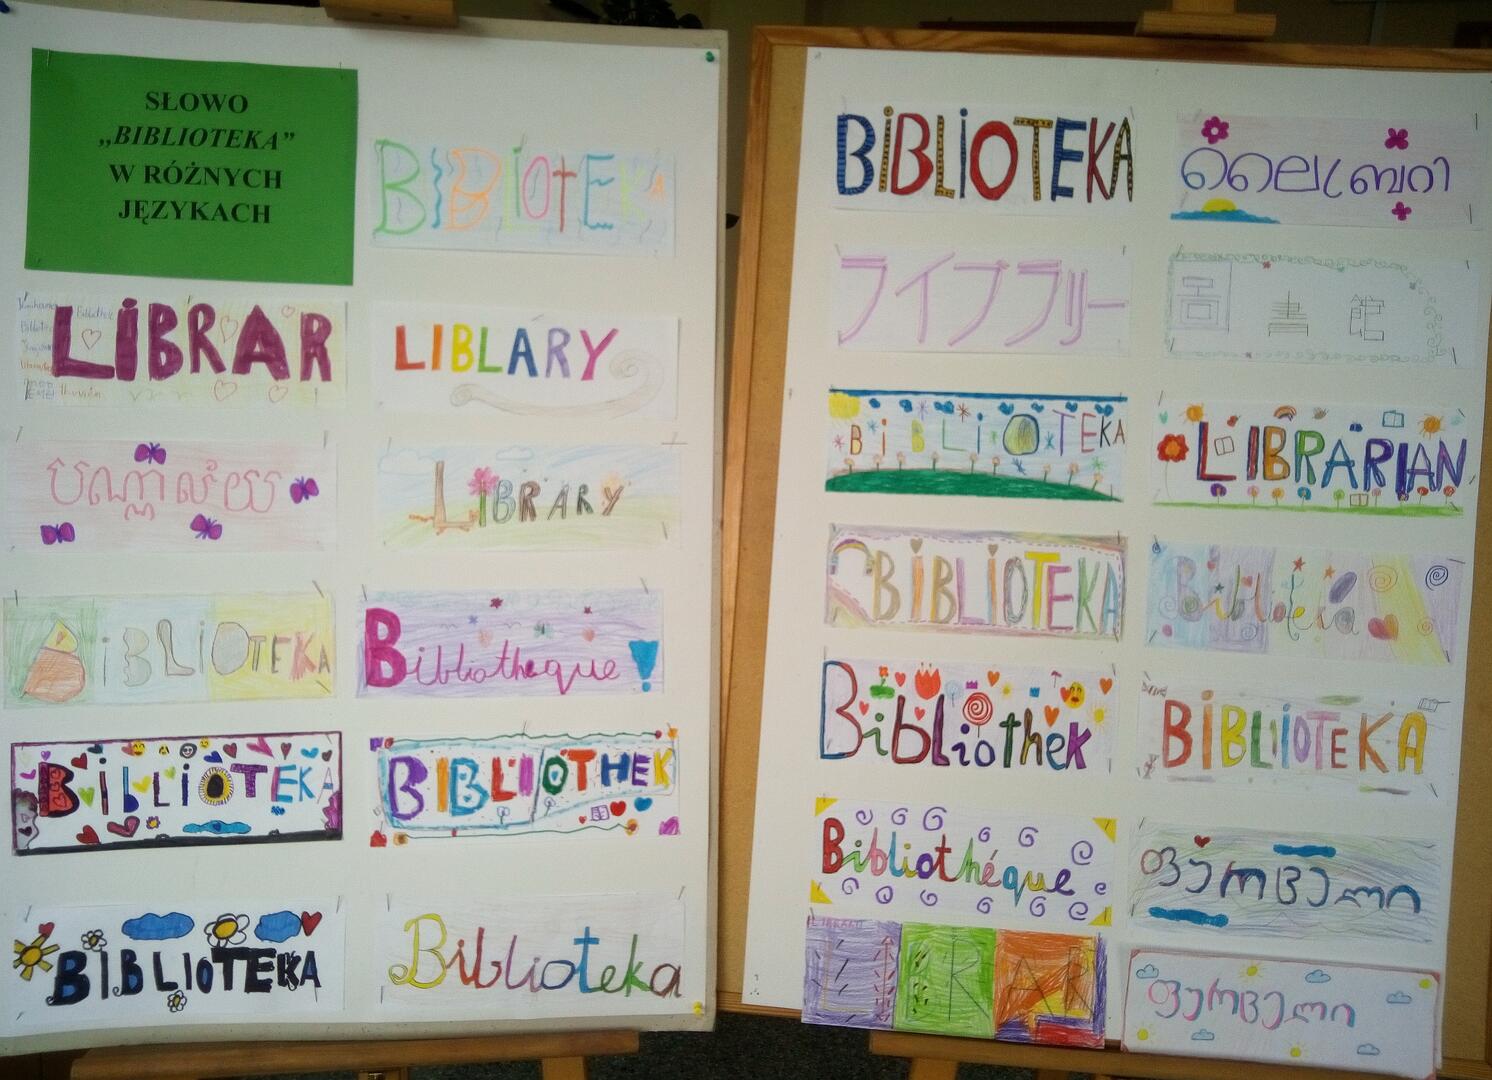 SŁOWO
„BIBLIOTEKA”
W RÓŻNYCH
JĘZYKACH
BIBLIOTEKA
LIBRAR
LIBLARY
បណ្ណាល័យ
LIBRARY
BIBLIOTEKA
Bibliotheque!
BIBLIOTEKA
BIBLIOTHEK
BIBLIOTEKA
Biblioteka
BIBLIOTEKA
ലൈബ്രറി
ライブラリー
書館
BIBLIOTEKA
LIBRARIAN
BIBLIOTEKA
Bibliotéka
Bibliothek
BIBLIOTEKA
Bibliothéque
ფურცელი
LIBRARI
LIBRAR
ფურცელი